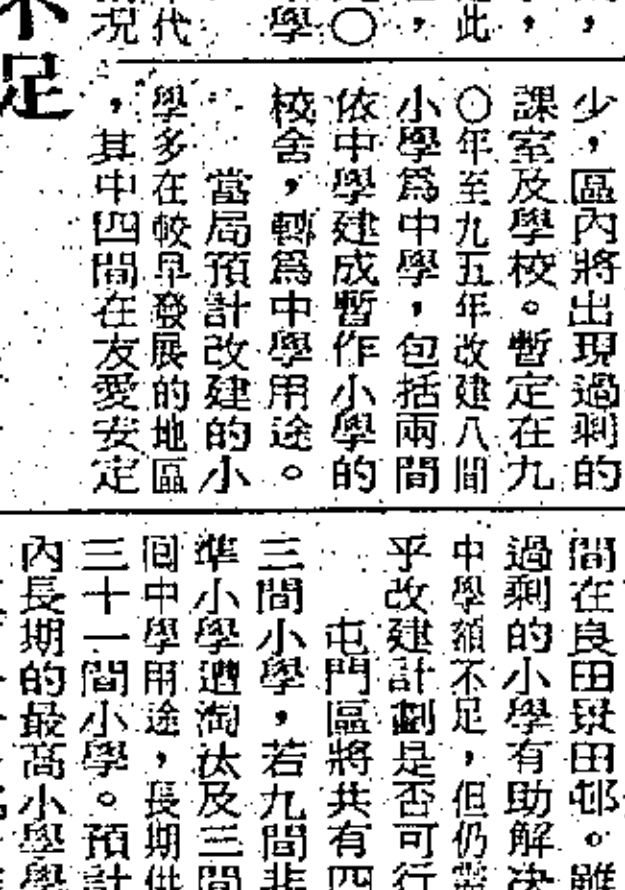 此，
，
學○，
代
況
不足
少，區內將出現過剩的
課室及學校。暫定在九
○年至九五年改建八間
小學為中學，包括兩間
依中學建成暫作小學的
校舍，轉為中學用途。
當局預計改建的小
學多在較早發展的地區
，其中四間在友愛安定
間在良田景田邨。雖
過剩的小學有助解決
中學額不足，但仍
乎改建計劃是否可行
屯門區將共有四
三間小學，若九間非
準小學遭淘汰及三間
回中學用途，長期供
三十一間小學。預計
內長期的最高小學學